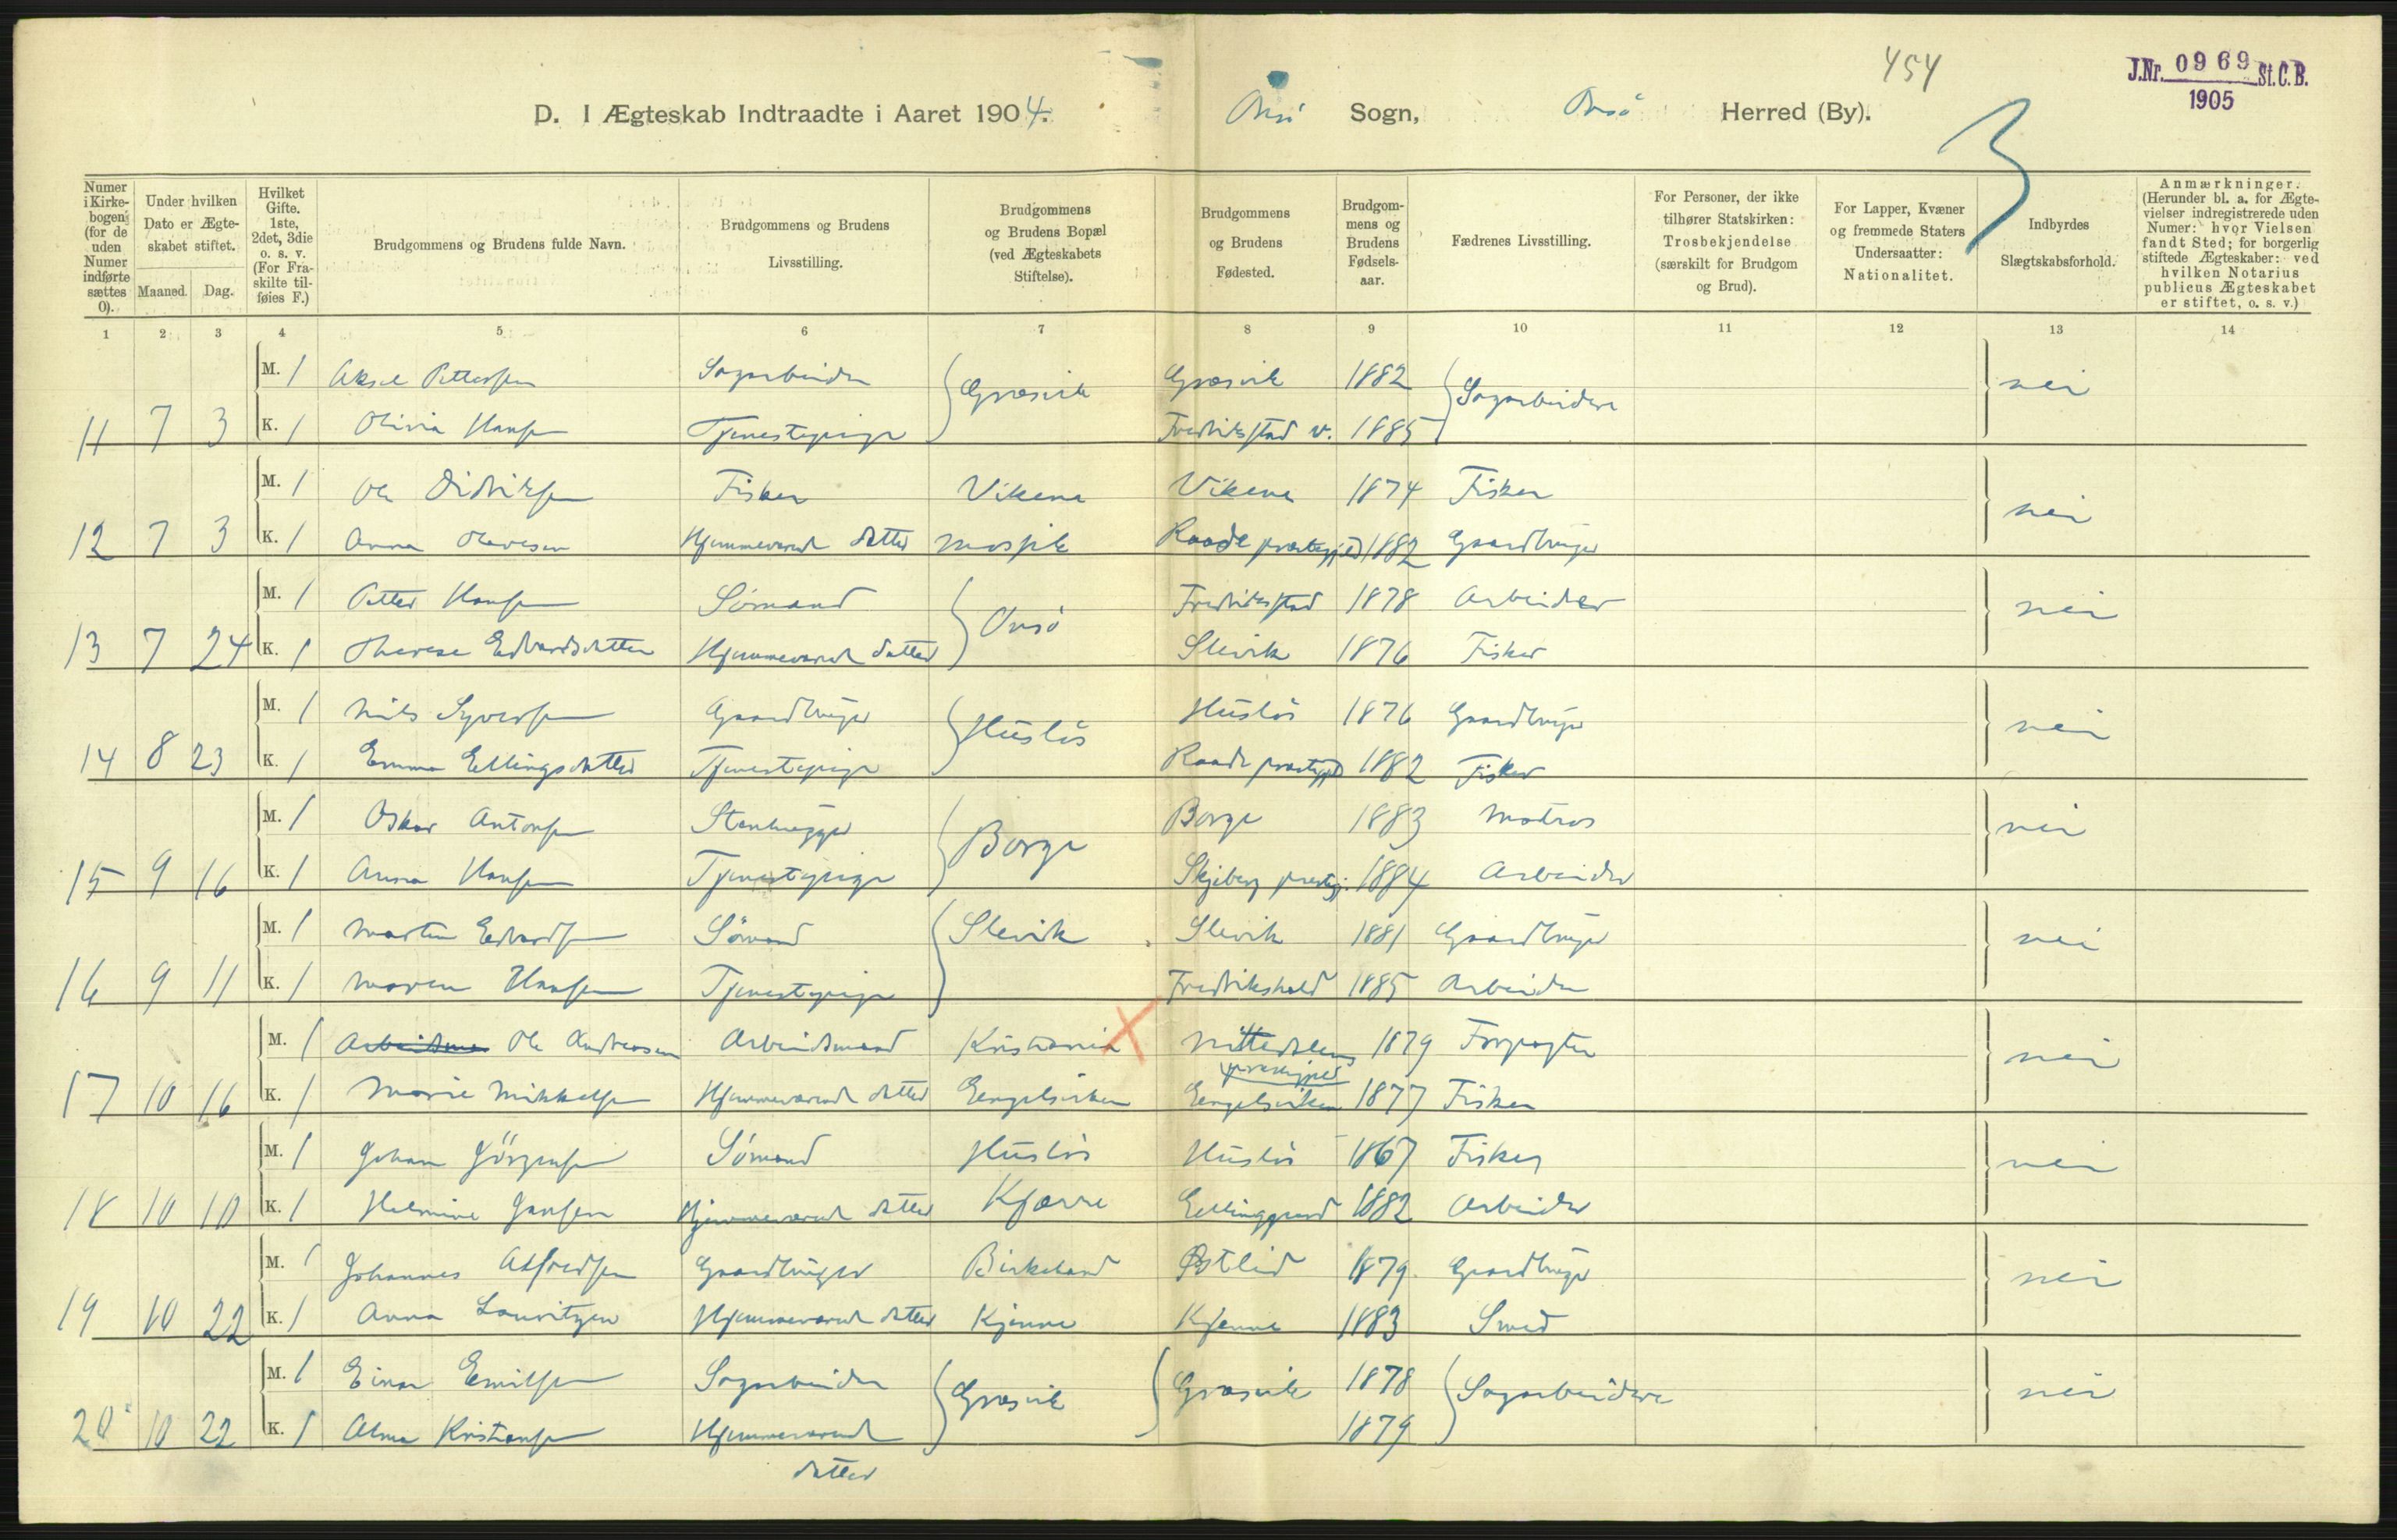 454
J.Nr. 0969 St.C.B.
1905
D. I Ægteskab Indtraadte i Aaret 1904. Onsö Sogn, Onsö Herred (By).
3
Numer i Kirkebogen; (for de uden Numer indførte sættes 0).
Under hvilken Dato er Ægteskabet stiftet. Maaned. Dag.
Hvilket Gifte. 1ste, 2det, 3die o. s. v. (For Fraskilte tilføies F.)
Brudgommens og Brudens fulde Navn.
Brudgommens og Brudens Livsstilling.
Brudgommens og Brudens Bopæl (ved Ægteskabets Stiftelse).
Brudgommens og Brudens Fødested.
Brudgommens og Brudens Fødselsaar.
Fædrenes Livsstilling.
For Personer, der ikke tilhører Statskirken: Trosbekjendelse (særskilt for Brudgom og Brud).
For Lapper, Kvæner og fremmede Staters Undersaatter: Nationalitet.
Indbyrdes Slægtskabsforhold.
Anmærkninger. (Herunder bl. a. for Ægtevielser indregistrerede uden Numer: hvor Vielsen fandt Sted; for borgerlig stiftede Ægteskaber: ved hvilken Notarius publicus Ægteskabet er stiftet, o. s. v.)
1 2 3 4 5 6 7 8 9 10 11 12 13 14
M. 1 Aksel Pettersen Sagarbeider Græsvik Græsvik 1882 Sagarbeidere nei
11 7 3 K. 1 Olivia Hansen Tjenestepige Fredriksstad v. 1885
M. 1 Ole Didriksen Fisker Vikene Vikene 1874 Fisker nei
12 7 3 K. 1 Anna Olavesen Hjemmeværende datter Raade præstegjeld 1882 Gaardbruger
M. 1 Petter Hansen Sömand Onsö Fredriksstad 1878 Arbeider nei
13 7 24 K. 1 Therese Edvardsdatter Hjemmeværende datter Slevik 1876 Fisker
M. 1 Nils Syversen Gaardbruger Huslös Huslös 1876 Gaardbruger nei
14 8 23 K. 1 Emma Ellingsdatter Tjenestepige Raade præstegjeld 1882 Fisker
M. 1 Oskar Antonsen Stenhugger Borge Borge 1883 Matros nei
15 9 16 K. 1 Anna Hansen Tjenestepige Skjeberg præstegj. 1884 Arbeider
M. 1 Martin Edvardsen Sömand Slevik Slevik 1881 Gaardbruger nei
16 9 11 K. 1 Maren Hansen Tjenestepige Fredrikshald 1885 Arbeider
M. 1 Arbeidsman Ole Andreasen Arbeidsmand Kristiania Nittedalens præstegjeld 1879 Forpagter nei
17 10 16 K. 1 Marie Mikkelsen Hjemmeværende datter Engelsviken Engelsviken 1877 Fisker
M. 1 Johan Jörgensen Sömand Huslös Huslös 1867 Fisker nei
18 10 10 K. 1 Helmine Jansen Hjemmeværende datter Kjærre 1882 Arbeider
M. 1 Johannes Alfredsen Gaardbruger Birkeland Østlid 1879 Gaardbruger nei
19 10 22 K. 1 Anna Lauritzen Hjemmeværende datter Kjenne Kjenne 1883 Smed
M. 1 Einar Emilsen Sagarbeider Græsvik Græsvik 1878 Sagarbeidere nei
20 10 22 K. 1 Alma Kristiansen Hjemmeværende 1879
datter